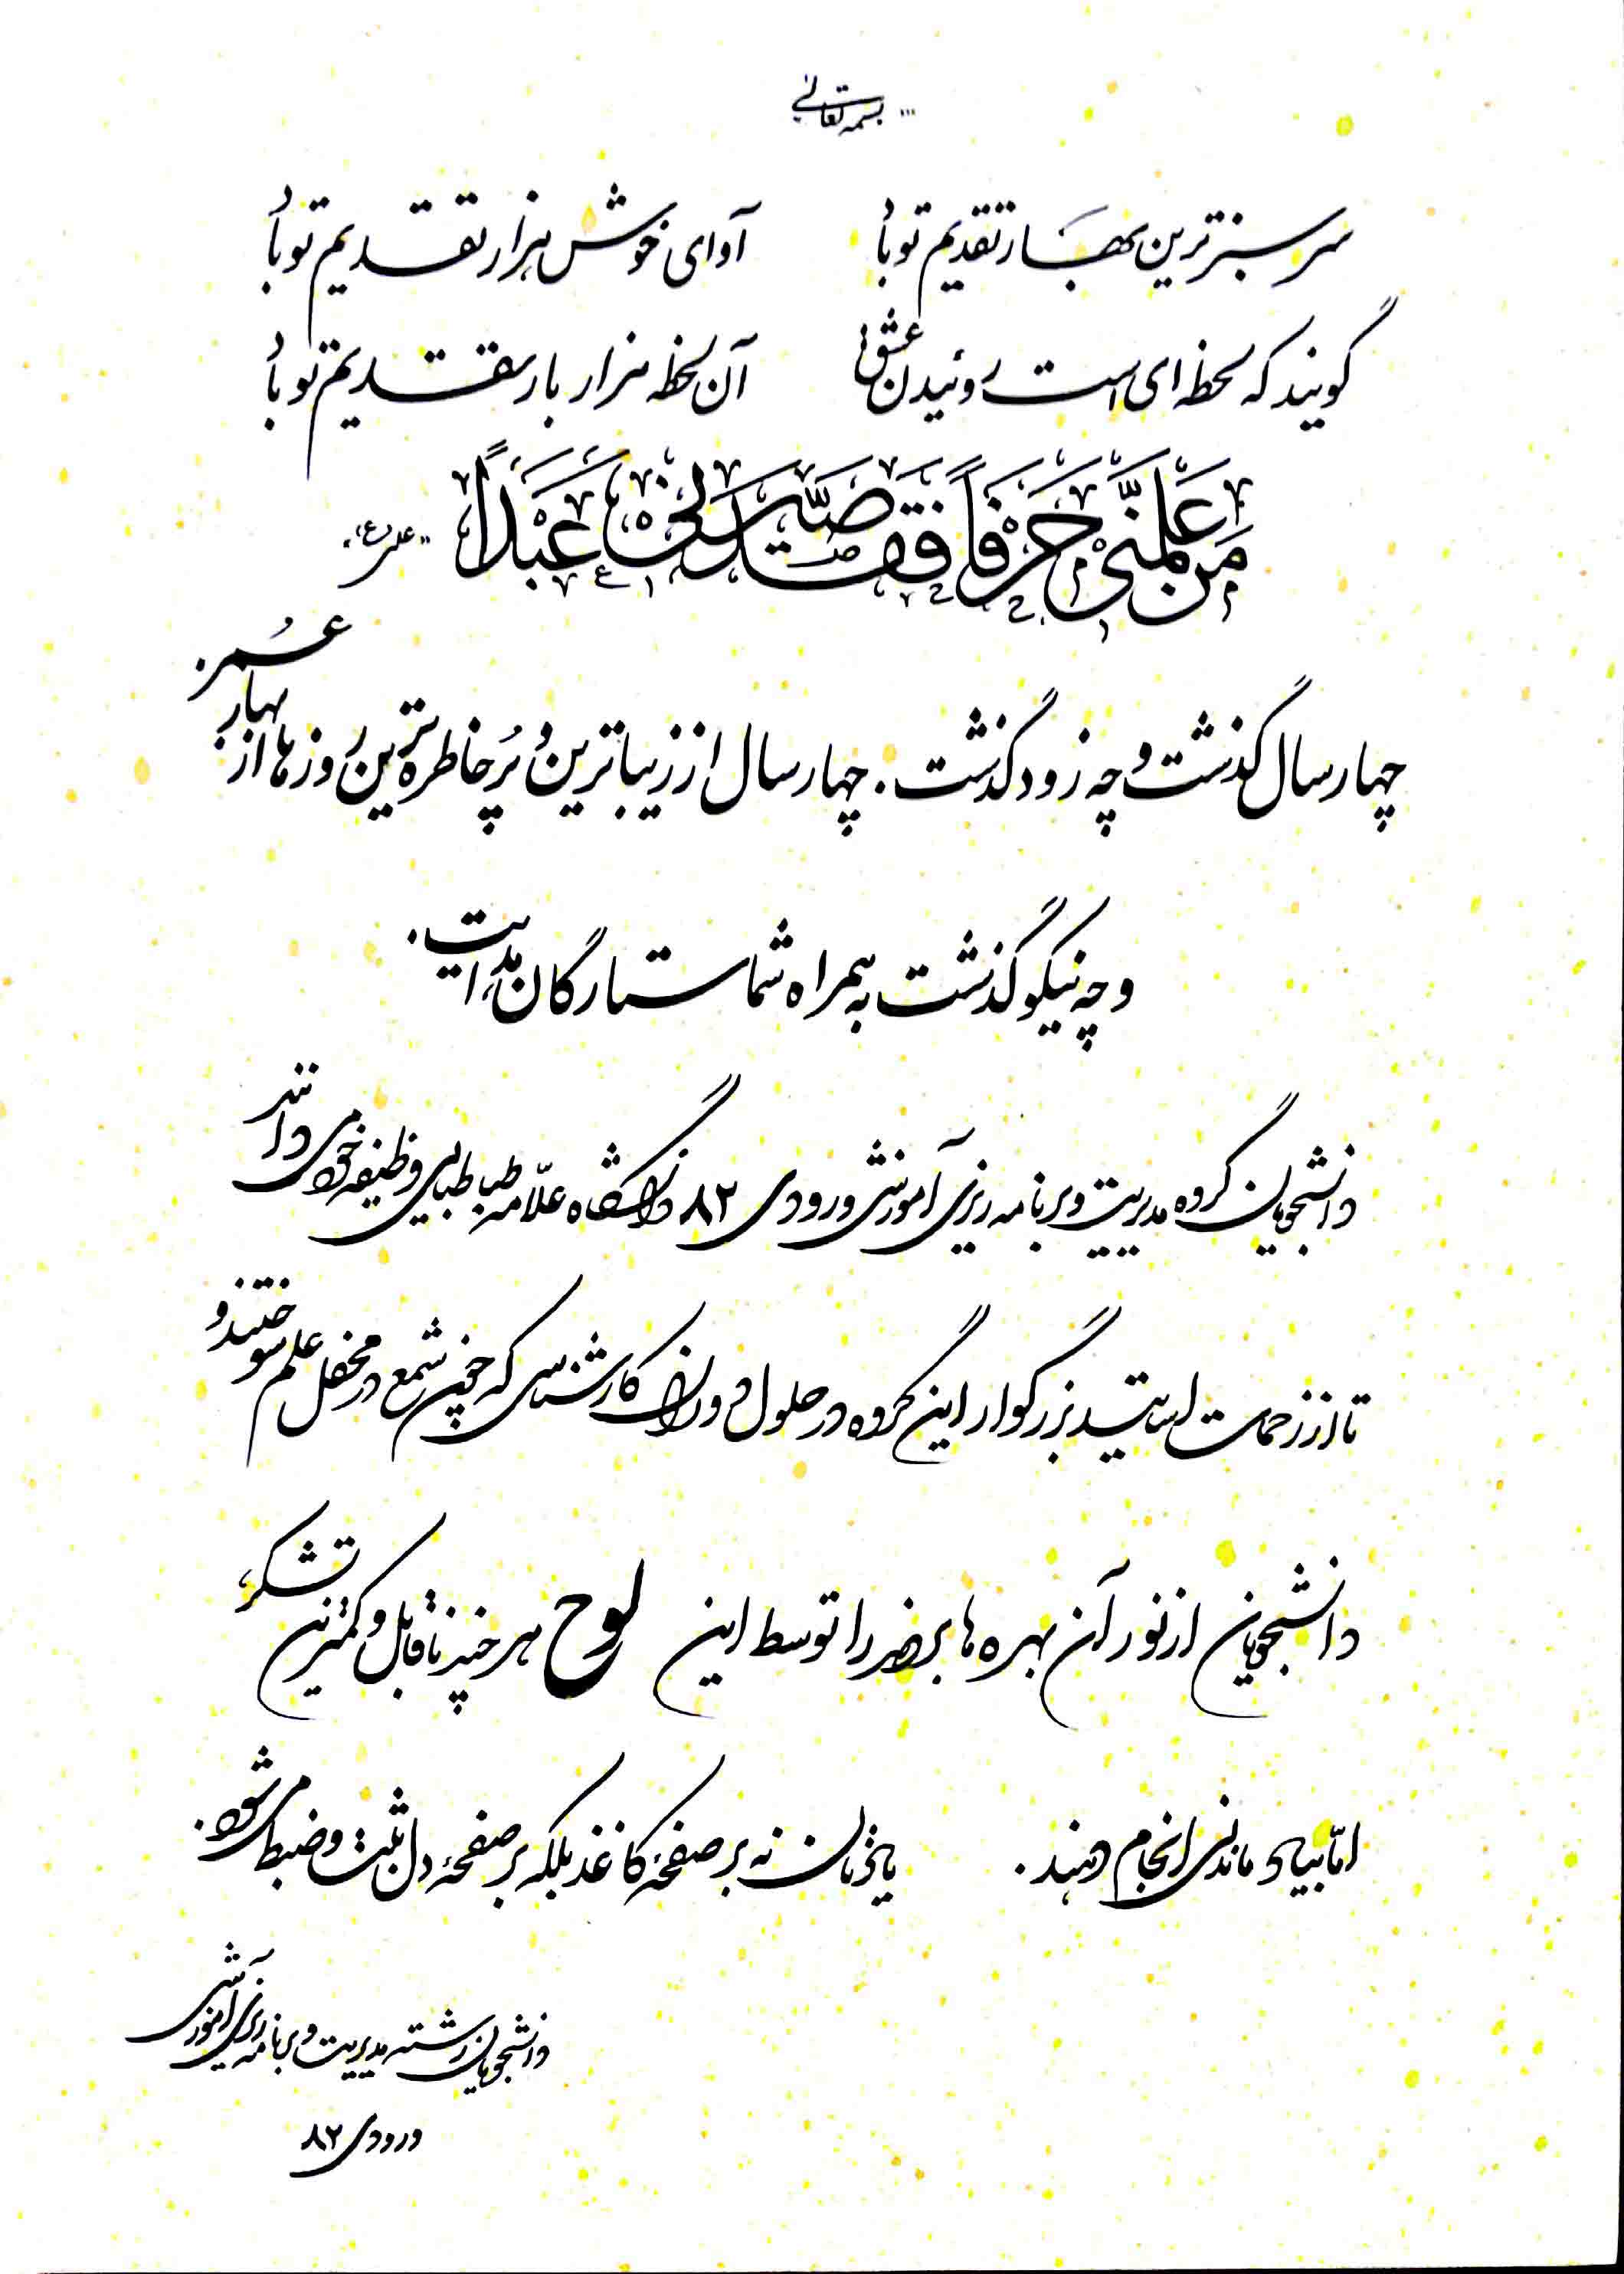 بسمه تعالی
سرسبزترین بهار تقدیم تو باد آوای خوش هزار تقدیم تو باد
گویند که لحظه ای است روئیدن عشق آن لحظه هزار بار تقدیم تو باد
مَن عَلَّمَنی حَرفاً فَقَد صَیَّرَنی عَبداً «علی (ع)»
چهار سال گذشت و چه زود گذشت. چهار سال از زیباترین و پُر خاطره ترین روزها از بهار عُمر.
و چه نیکو گذشت به همراه شما ستارگان هدایت.
دانشجویان گروه مدیریت و برنامه ریزی آموزشی ورودی ۸۲ دانشگاه علّامه طباطبایی وظیفه خود می دانند
تا از زحمات اساتید بزرگوار این گروه در طول دوران کارشناسی که چون شمع در محفل علم سوختند و
دانشجویان از نور آن بهره ها بردند را توسط این لوح هر چند ناقابل و کمترین تشکر،
امّا بیاد ماندنی انجام دهند. یادتان نه بر صفحهٔ کاغذ بلکه بر صفحهٔ دل ثبت و ضبط می شود.
دانشجویان رشته مدیریت و برنامه ریزی آموزشی
ورودی ۸۲